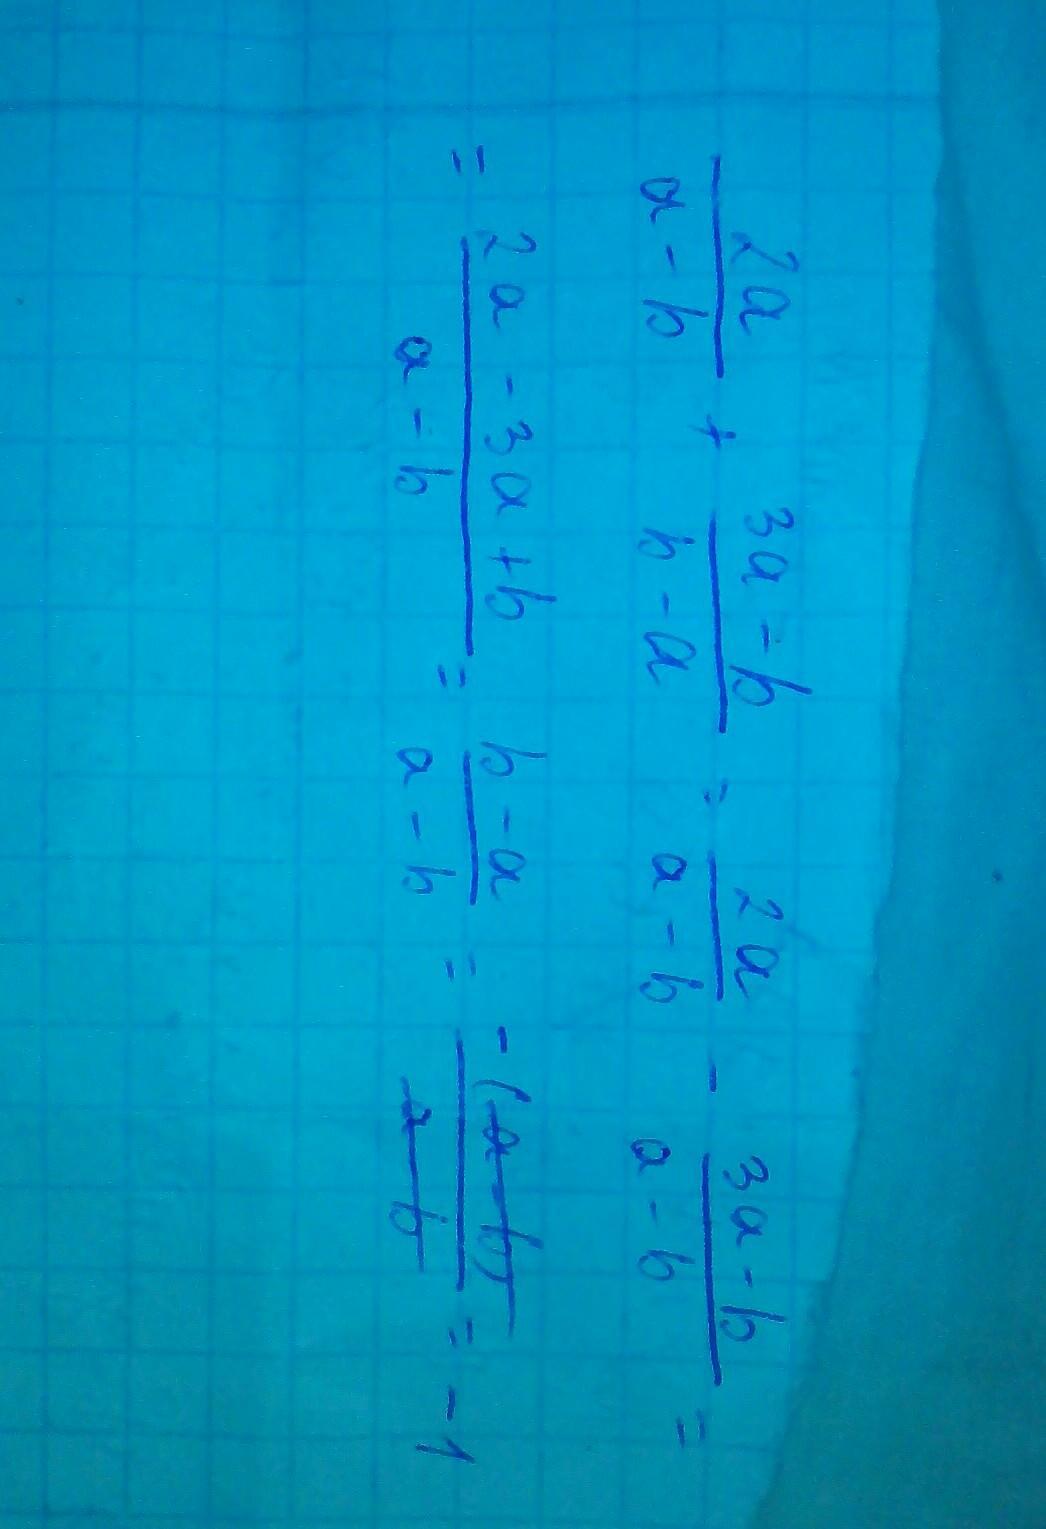 2a/(a - b) + (3a - b)/(b - a) = 2a/(a - b) - (3a - b)/(a - b) =
= (2a - 3a + b)/(a - b) = (b - a)/(a - b) = -(a - b)/(a - b) = -1